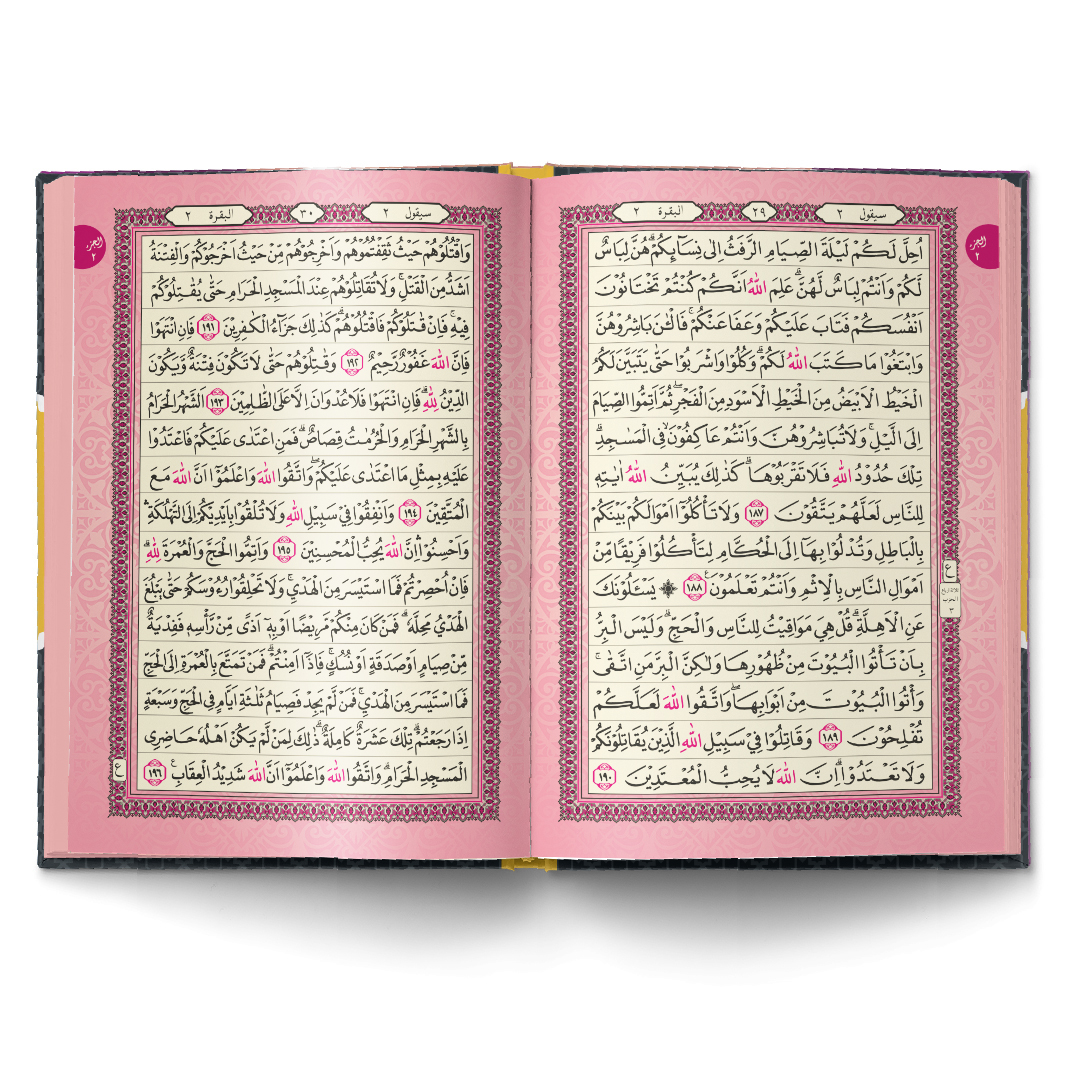 سيقول ٢
٢٩
البقرة ٢
الجزء ٢
اُحِلَّ لَكُمْ لَيْلَةَ الصِّيَامِ الرَّفَثُ اِلٰى نِسَآئِكُمْ ؕ هُنَّ لِبَاسٌ
لَّكُمْ وَاَنْتُمْ لِبَاسٌ لَّهُنَّ ؕ عَلِمَ اللّٰهُ اَنَّكُمْ كُنْتُمْ تَخْتَانُوْنَ
اَنْفُسَكُمْ فَتَابَ عَلَيْكُمْ وَعَفَا عَنْكُمْ ۚ فَالْـٰٔنَ بَاشِرُوْهُنَّ
وَابْتَغُوْا مَا كَتَبَ اللّٰهُ لَكُمْ ۪ وَكُلُوْا وَاشْرَبُوْا حَتّٰى يَتَبَيَّنَ لَكُمُ
الْخَيْطُ الْاَبْيَضُ مِنَ الْخَيْطِ الْاَسْوَدِ مِنَ الْفَجْرِ ۖ ثُمَّ اَتِمُّوا الصِّيَامَ
اِلَى الَّيْلِ ۚ وَلَا تُبَاشِرُوْهُنَّ وَاَنْتُمْ عَاكِفُوْنَ فِى الْمَسٰجِدِ ؕ
تِلْكَ حُدُوْدُ اللّٰهِ فَلَا تَقْرَبُوْهَا ؕ كَذٰلِكَ يُبَيِّنُ اللّٰهُ اٰيٰتِهٖ
لِلنَّاسِ لَعَلَّهُمْ يَتَّقُوْنَ ۝١٨٧ وَلَا تَاْكُلُوْۤا اَمْوَالَكُمْ بَيْنَكُمْ
بِالْبَاطِلِ وَتُدْلُوْا بِهَاۤ اِلَى الْحُكَّامِ لِتَاْكُلُوْا فَرِيْقًا مِّنْ
اَمْوَالِ النَّاسِ بِالْاِثْمِ وَاَنْتُمْ تَعْلَمُوْنَ ۝١٨٨ ۞ يَسْـَٔلُوْنَكَ
عَنِ الْاَهِلَّةِ ؕ قُلْ هِىَ مَوَاقِيْتُ لِلنَّاسِ وَالْحَجِّ ؕ وَلَيْسَ الْبِرُّ
بِاَنْ تَاْتُوا الْبُيُوْتَ مِنْ ظُهُوْرِهَا وَلٰكِنَّ الْبِرَّ مَنِ اتَّقٰى ۚ
وَاْتُوا الْبُيُوْتَ مِنْ اَبْوَابِهَا ۪ وَاتَّقُوا اللّٰهَ لَعَلَّكُمْ
تُفْلِحُوْنَ ۝١٨٩ وَقَاتِلُوْا فِىْ سَبِيْلِ اللّٰهِ الَّذِيْنَ يُقَاتِلُوْنَكُمْ
وَلَا تَعْتَدُوْا ؕ اِنَّ اللّٰهَ لَا يُحِبُّ الْمُعْتَدِيْنَ ۝١٩٠
ع
سيقول ٢
٣٠
البقرة ٢
الجزء ٢
وَاقْتُلُوْهُمْ حَيْثُ ثَقِفْتُمُوْهُمْ وَاَخْرِجُوْهُمْ مِّنْ حَيْثُ اَخْرَجُوْكُمْ وَالْفِتْنَةُ
اَشَدُّ مِنَ الْقَتْلِ ۚ وَلَا تُقَاتِلُوْهُمْ عِنْدَ الْمَسْجِدِ الْحَرَامِ حَتّٰى يُقٰتِلُوْكُمْ
فِيْهِ ۚ فَاِنْ قٰتَلُوْكُمْ فَاقْتُلُوْهُمْ ؕ كَذٰلِكَ جَزَآءُ الْكٰفِرِيْنَ ۝١٩١ فَاِنِ انْتَهَوْا
فَاِنَّ اللّٰهَ غَفُوْرٌ رَّحِيْمٌ ۝١٩٢ وَقٰتِلُوْهُمْ حَتّٰى لَا تَكُوْنَ فِتْنَةٌ وَّيَكُوْنَ
الدِّيْنُ لِلّٰهِ ؕ فَاِنِ انْتَهَوْا فَلَا عُدْوَانَ اِلَّا عَلَى الظّٰلِمِيْنَ ۝١٩٣ اَلشَّهْرُ الْحَرَامُ
بِالشَّهْرِ الْحَرَامِ وَالْحُرُمٰتُ قِصَاصٌ ؕ فَمَنِ اعْتَدٰى عَلَيْكُمْ فَاعْتَدُوْا
عَلَيْهِ بِمِثْلِ مَا اعْتَدٰى عَلَيْكُمْ ۪ وَاتَّقُوا اللّٰهَ وَاعْلَمُوْۤا اَنَّ اللّٰهَ مَعَ
الْمُتَّقِيْنَ ۝١٩٤ وَاَنْفِقُوْا فِىْ سَبِيْلِ اللّٰهِ وَلَا تُلْقُوْا بِاَيْدِيْكُمْ اِلَى التَّهْلُكَةِ ۛۚ
وَاَحْسِنُوْا ۛۚ اِنَّ اللّٰهَ يُحِبُّ الْمُحْسِنِيْنَ ۝١٩٥ وَاَتِمُّوا الْحَجَّ وَالْعُمْرَةَ لِلّٰهِ ؕ
فَاِنْ اُحْصِرْتُمْ فَمَا اسْتَيْسَرَ مِنَ الْهَدْىِ ۚ وَلَا تَحْلِقُوْا رُءُوْسَكُمْ حَتّٰى يَبْلُغَ
الْهَدْىُ مَحِلَّهٗ ؕ فَمَنْ كَانَ مِنْكُمْ مَّرِيْضًا اَوْ بِهٖۤ اَذًى مِّنْ رَّاْسِهٖ فَفِدْيَةٌ
مِّنْ صِيَامٍ اَوْ صَدَقَةٍ اَوْ نُسُكٍ ۚ فَاِذَاۤ اَمِنْتُمْ ۥ فَمَنْ تَمَتَّعَ بِالْعُمْرَةِ اِلَى الْحَجِّ
فَمَا اسْتَيْسَرَ مِنَ الْهَدْىِ ۚ فَمَنْ لَّمْ يَجِدْ فَصِيَامُ ثَلٰثَةِ اَيَّامٍ فِى الْحَجِّ وَسَبْعَةٍ
اِذَا رَجَعْتُمْ ؕ تِلْكَ عَشَرَةٌ كَامِلَةٌ ؕ ذٰلِكَ لِمَنْ لَّمْ يَكُنْ اَهْلُهٗ حَاضِرِى
الْمَسْجِدِ الْحَرَامِ ؕ وَاتَّقُوا اللّٰهَ وَاعْلَمُوْۤا اَنَّ اللّٰهَ شَدِيْدُ الْعِقَابِ ۝١٩٦
ع